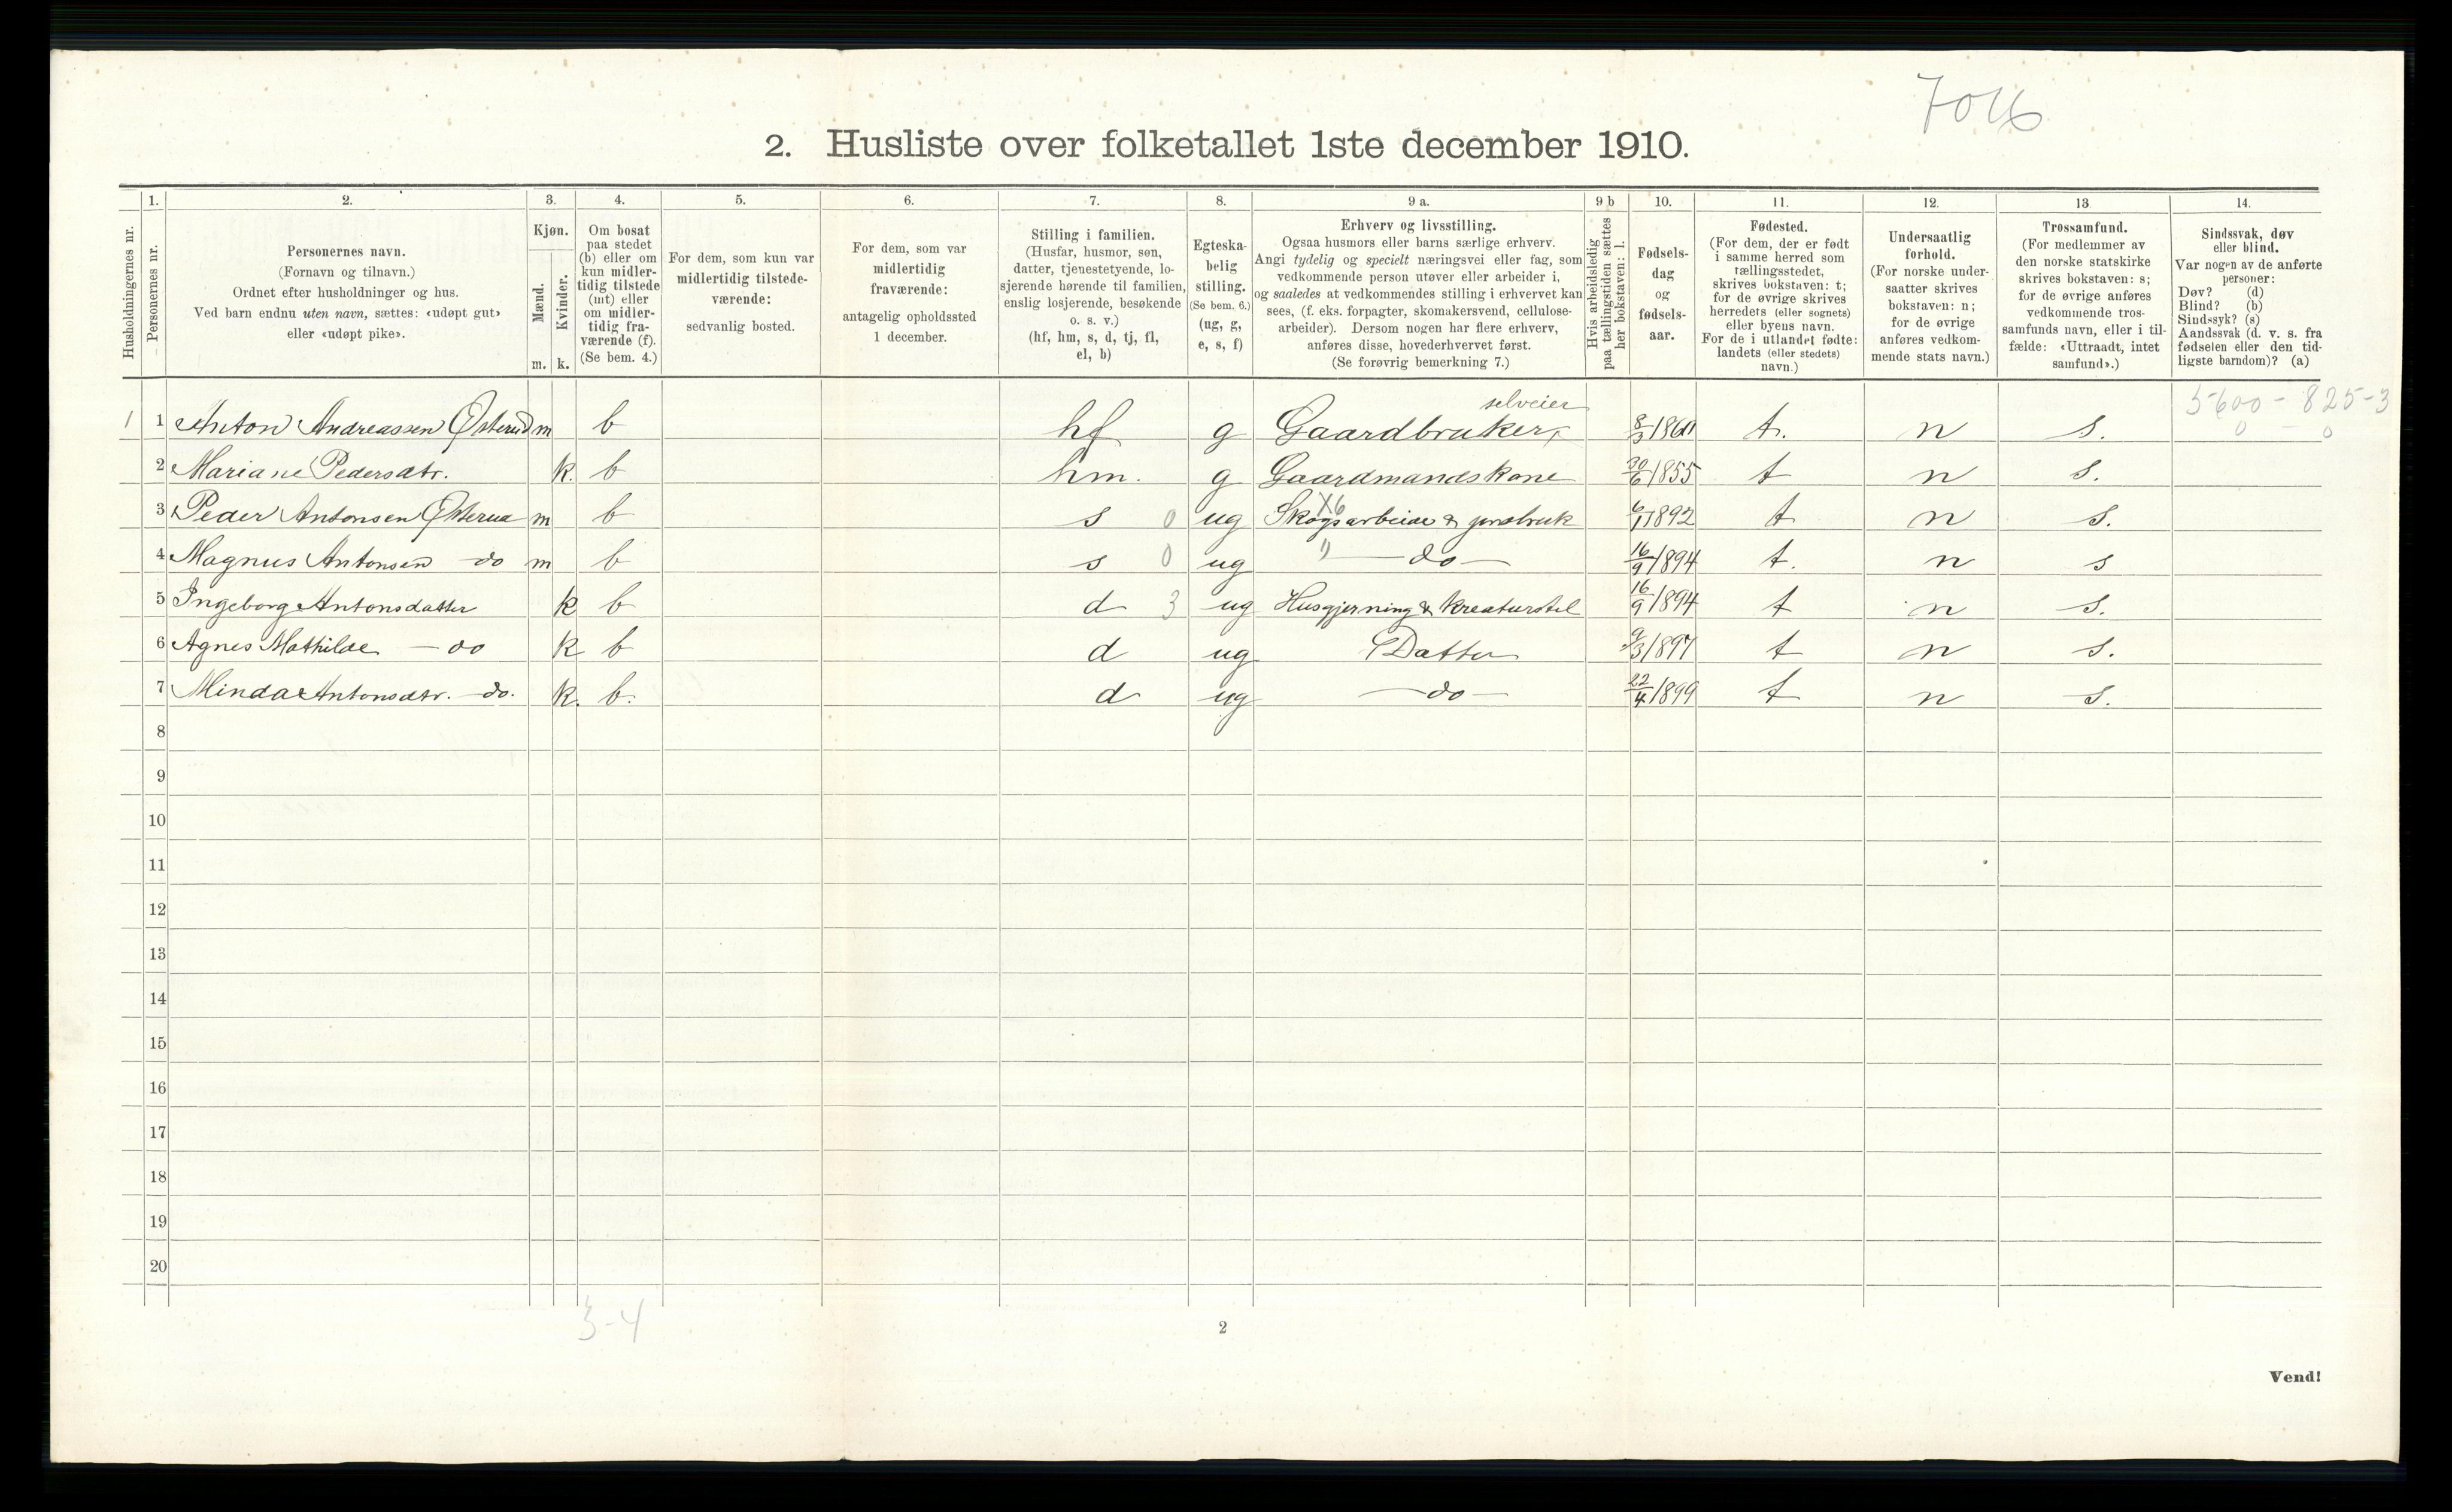 7016
2. Husliste over folketallet 1ste december 1910.
Husholdningernes nr.
1.
Personernes nr.
2.
Personernes navn.
(Fornavn og tilnavn.)
Ordnet efter husholdninger og hus.
Ved barn endnu uten navn, sættes: «udøpt gut»
eller «udøpt pike».
3.
Kjøn.
Mænd.
Kvinder.
m. k.
4.
Om bosat
paa stedet
(b) eller om
kun midler-
tidig tilstede
(mt) eller
om midler-
tidig fra-
værende (f).
(Se bem. 4.)
5.
For dem, som kun var
midlertidig tilstede-
værende:
sedvanlig bosted.
6.
For dem, som var
midlertidig
fraværende:
antagelig opholdssted
1 december.
7.
Stilling i familien.
(Husfar, husmor, søn,
datter, tjenestetyende, lo-
sjerende hørende til familien,
enslig losjerende, besøkende
o. s. v.)
(hf, hm, s, d, tj, fl,
el, b)
8.
Egteska-
belig
stilling.
(Se bem. 6.)
(ug, g,
e, s, f)
9 a.
Erhverv og livsstilling.
Ogsaa husmors eller barns særlige erhverv.
Angi tydelig og specielt næringsvei eller fag, som
vedkommende person utøver eller arbeider i,
og saaledes at vedkommendes stilling i erhvervet kan
sees, (f. eks. forpagter, skomakersvend, cellulose-
arbeider). Dersom nogen har flere erhverv,
anføres disse, hovederhvervet først.
(Se forøvrig bemerkning 7.)
9 b
Hvis arbeidsledig
paa tællingstiden sættes
her bokstaven: l.
10.
Fødsels-
dag
og
fødsels-
aar.
11.
Fødested.
(For dem, der er født
i samme herred som
tællingsstedet,
skrives bokstaven: t;
for de øvrige skrives
herredets (eller sognets)
eller byens navn.
For de i utlandet fødte:
landets (eller stedets)
navn.)
12.
Undersaatlig
forhold.
(For norske under-
saatter skrives
bokstaven: n;
for de øvrige
anføres vedkom-
mende stats navn.)
13
Trossamfund.
(For medlemmer av
den norske statskirke
skrives bokstaven: s;
for de øvrige anføres
vedkommende tros-
samfunds navn, eller i til-
fælde: «Uttraadt, intet
samfund».)
14.
Sindssvak, døv
eller blind.
Var nogen av de anførte
personer:
Døv? (d)
Blind? (b)
Sindssyk? (s)
Aandssvak (d. v. s. fra
fødselen eller den tid-
ligste barndom)? (a)
5-600 - 825-3
0 - 0
selveier
1 1 Anton Andreassen Østerud m b hf g Gaardbruker, t. n s.
2 Mariane Pedersdtr. k. b hm. g Gaardmandskone 30/6 1855 t n s.
X6
3 Peder Antonsen Østerud m b s 0 ug Skogsarbeide & jordbruk 6/11 1892 t n s.
4 Magnus Antonsen do m b s 0 ug " do 16/9 1894 t. n s
5 Ingeborg Antonsdatter k b d 3 ug Husgjerning & Kreaturstel 16/9 1894 t n s.
6 Agnes Mathilde do k b d ug Datter 9/3 1897 t n s.
7 Minda Antonsdtr. do. k. b. d ug do 22/4 1899 t n s.
8
9
10
11
12
13
14
15
16
17
18
19
20
3-4
2
Vend!